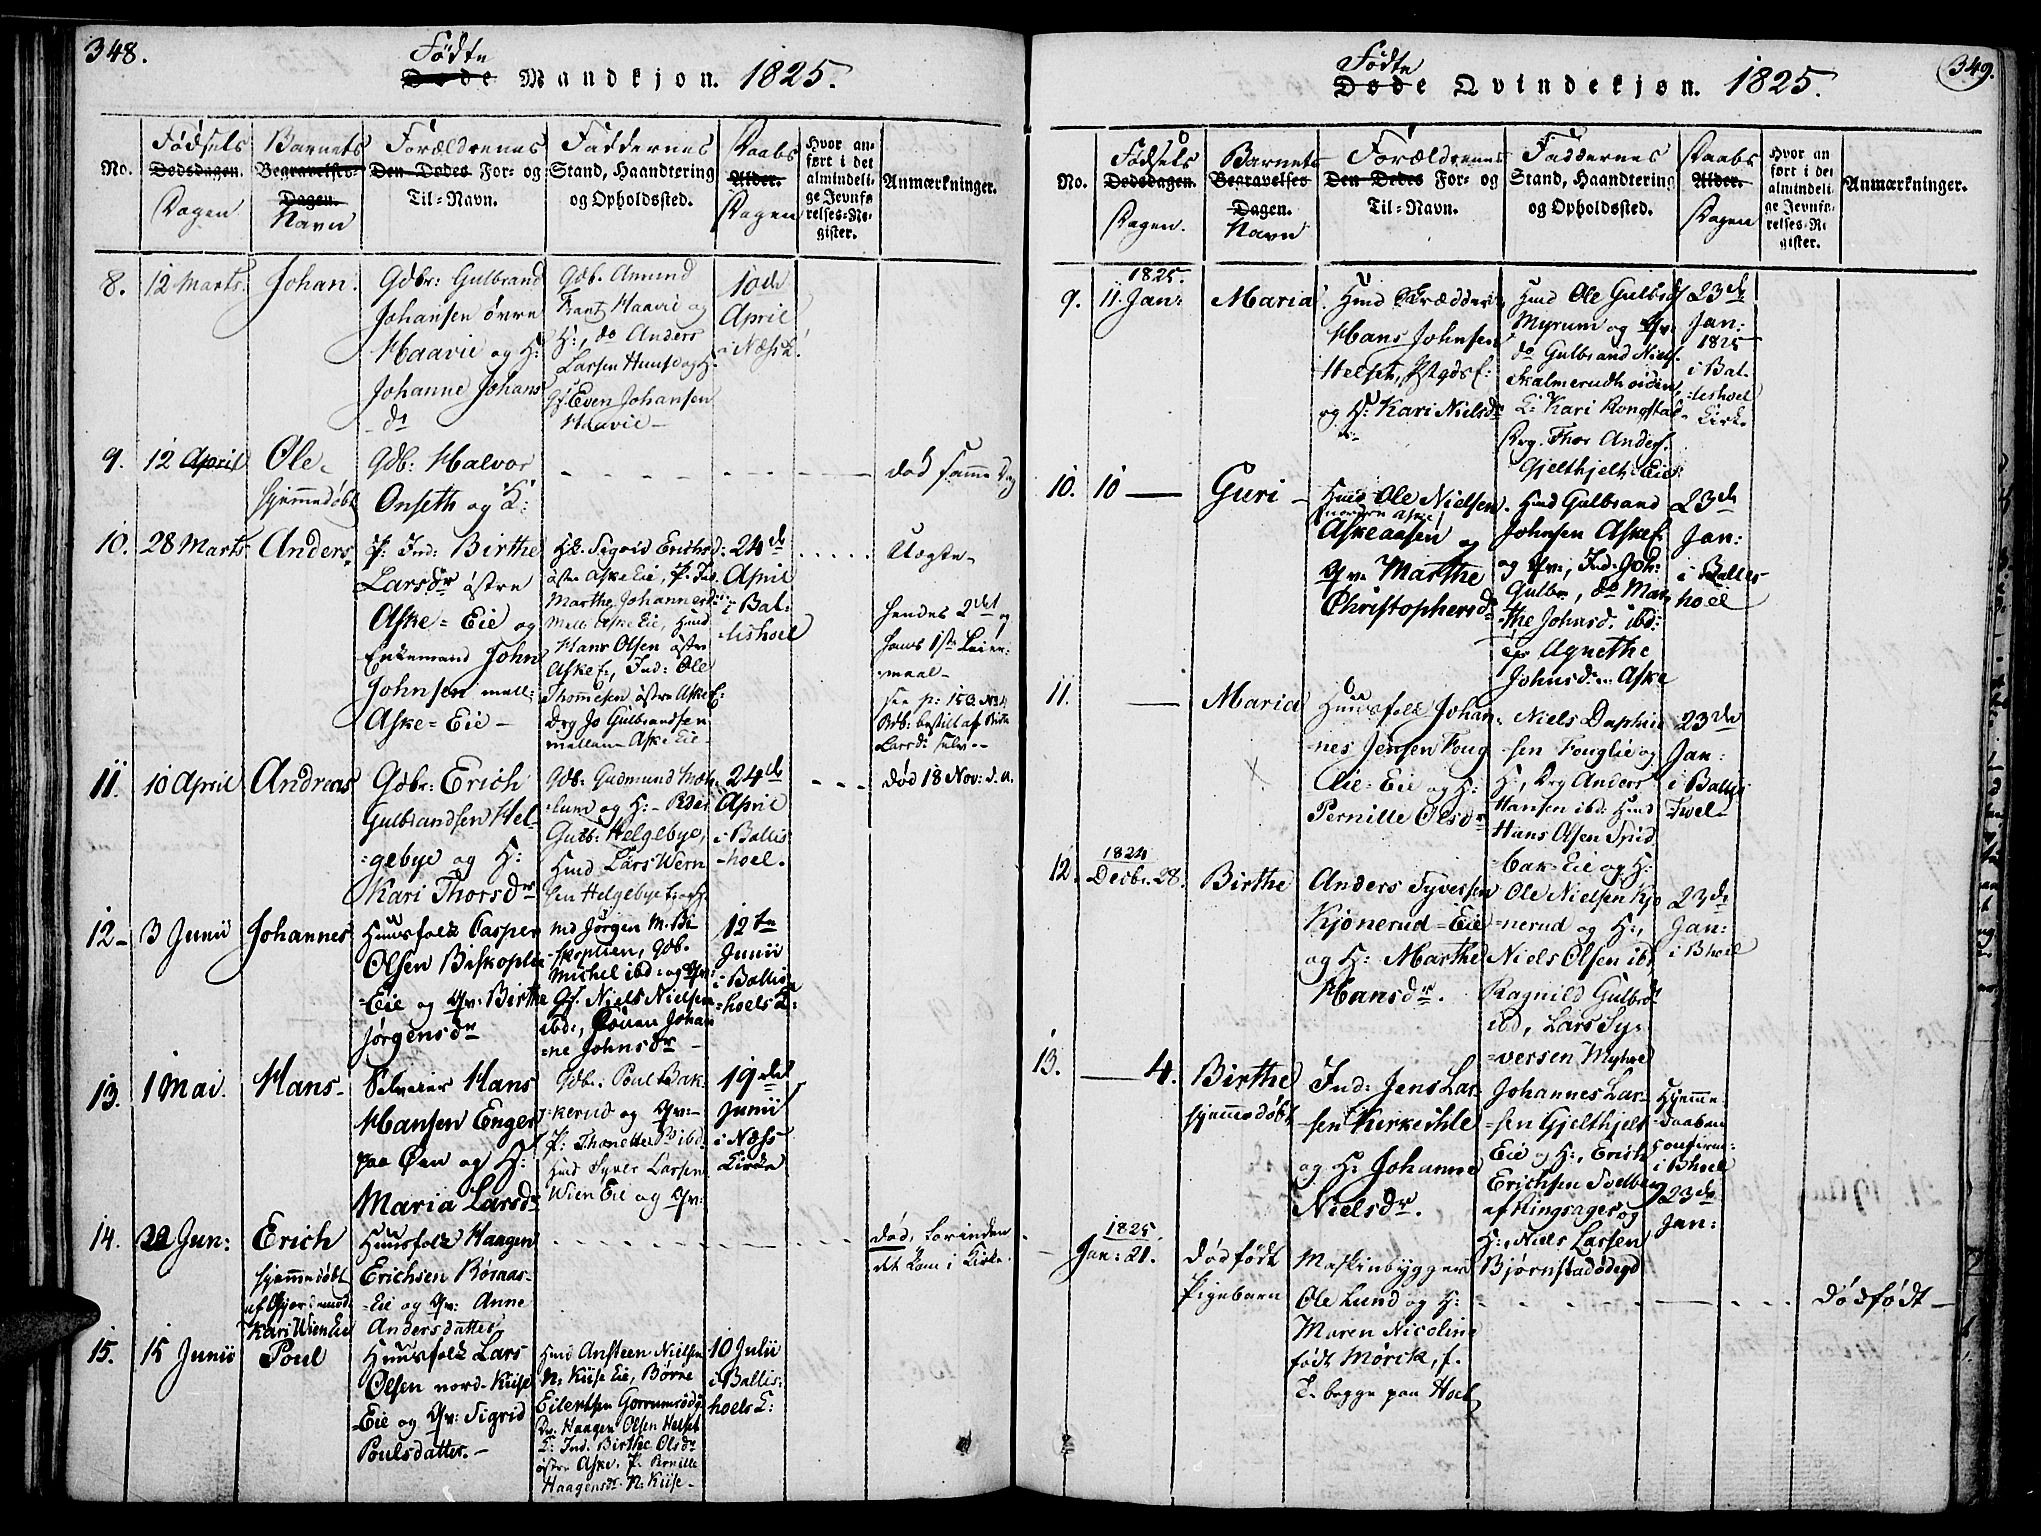 348.
Fødte
Døde Mandkjøn. 1825.
No.
Fødsels
Dødsdagen.
Dagen
Barnets
Begravelses-
Dagen.
Navn
Forældrenes
Den Dødes For- og
Til-Navn.
Faddernes
Stand, Haandtering
og Opholdssted.
Daabs
Alder.
Dagen
Hvor an-
ført i det
almindeli-
ge Jevnfø-
relses-Re-
gister.
Anmærkninger.
8.
12 Marts.
Johan.
Gdbr: Gulbrand
Johansen övre
Haavie og H:
Johanne Johans
dr
Gdb. Amund
Haavie og
H:, do Anders
Larsen og H.
Gf. Even Johansen
Haavie
10de
April
i Næs K.
9.
12 April
Ole
hjemmedøbt
Gdb: Halvor
Onseth og K:
død samme Dag
10.
28 Marts
Anders
P: Ind: Birthe
Larsdr østre
Aske=Eie og
Enkemand John
Johnsen mell:
Aske=Eie
Hk. Sigrid Erichsd:
østre Aske Eie, P: Ind.
Marthe Johannesd:
mell: Aske Eie, Huusd
Hans Olsen østre
Aske E:, Ind: Ole
Thommesen østre Aske E:
Drg Jo Gulbrandsen
mellem Aske Eie
24de
April
i Bal-
lishoel
Uægte
hendes 2det og
hans 1ste Leier-
maal
see p: 153. No
Ddb: bestilt af Birthe
Larsd: selv.
11.
10 April
Andreas
Gdbr: Erich
Gulbrandsen Hel-
=gebye og H:
Kari Thorsdr
Gdb: Gudmund
og H:
Gulb: Helgebye,
Hmd Lars
sen Helgebye E: og H:
24de
April
i Ballis-
hoel.
død 18 Nov: d. a.
12
3 Junii
Johannes
Huusfolk Casper
Olsen Biskoplie
=Eie og Qv: Birthe
Jørgensdr
Md Jørgen M. Bi-
skoplien, Gdb.
Michel ibd: og Qv:
Gf. Niels Nielsen
ibd:, Johan
=ne Johnsdr
12te
Junii
i Ballis
=hoels K:
13.
1 Mai.
Hans
Selveier Hans
Hansen Enger
paa Øen og H:
Maria Larsdr
Gdb: Poul Bak-
kerud og Qv:
P: Thonette ibd.
Hmd Syver Larsen
Wien Eie og Qv:
19de
Junii
i Næss
Kirke
14.
22 Jun:
Erich
hjemmedøbt
af Gjordemod.
Kari Wien Eie
Huusfolk Haagen
Erichsen Böraas-
=Eie og Qv: Anne
Andersdatter
død, forinden
det kom i Kirke
15.
15 Junii
Poul
Huusfolk Lars
Olsen nord-Kiise
Eie og Qv: Sigrid
Poulsdatter.
Hmd Ansteen Nielsen
N: Kiise Eie, Børre
Eilertsen
Dr. Haagen Olsen Helset
E: Ind. Birthe Olsdr
østre Aske, P: Pernille
Haagensdr N: Kiise
10 Julii
i Ballis-
hoels K:
349.
Fødte
Døde Qvindekjøn. 1825.
No.
Fødsels
Dødsdagen.
Dagen.
Barnets
Begravelses
Dagen.
Navn
Forældrenes
Den Dødes For- og
Til-Navn.
Faddernes
Stand, Haandtering
og Opholdssted.
Daabs
Alder.
Dagen
Hvor an
ført i det
almindeli
ge Jevnfø-
relses-Re
gister.
Anmærkninger.
9.
1825.
11. Jan:
Maria
Hmd Skrædder
Hans Johnsen
Helset,
og H: Kari Nielsdr
Hmd Ole Gulbrds
Myrum og Qv:
do Gulbrand Niels.
E: Kari
Drg. Thor Anders.
Gjelthjelt: Eie
23de
Jan:
1825
i Bal-
=lishoel
Kirke
10.
10
Guri
Hmd Ole Nielsen
nordre Aske
Askeaasen og
Qv: Marthe
Christophersdr
Hmd Gulbrand
Johnsen Aske E.
og Qv:, Ind: Joh:
Gulbr, do Mar-
the Johnsd. ibd:
Agnethe
Johnsd. Aske
23de
Jan:
i Ballis-
hoel
11.
Maria
Huusfolk Johan-
nes Jensen Foug
lie=Eie og H:
Pernille Olsdr
Niels Daphin
sen Fouglie og
H:, Drg Anders
Hansen ibd. Hmd
Hans Olsen
bak=Eie og H:
23de
Jan:
i Ballis
hoel
12.
1824
Decbr. 28.
Birthe
Anders Syversen
Kjonerud=Eie
og H: Marthe
Hansdr.
Ole Nielsen Kjo
=nerud og H:,
Niels Olsen ibd
Ragnild Gulbrdr
ibd, Lars Sy-
=versen Myhre
23de
Jan:
i Bhoel
13.
4.
Birthe
hjemmedøbt
Ind: Jens Lar-
sen Kirkeihle
og H: Johanne
Nielsdr.
Johannes Lar-
sen Gjelthjelt
Eie og H:, Erich
Erichsen
af Ringsager og
H:, Niels Larsen
Bjørnstadødegd
Hjemme-
daaben
confirm:
i Bhoel
23de
Jan:
1825.
Jan: 21.
Dødfødt
Pigebarn
Maskinbygger
Ole Lund og H:
Maren Nicoline
født Mørck, f.
E. begge paa Hoel
Dødfødt